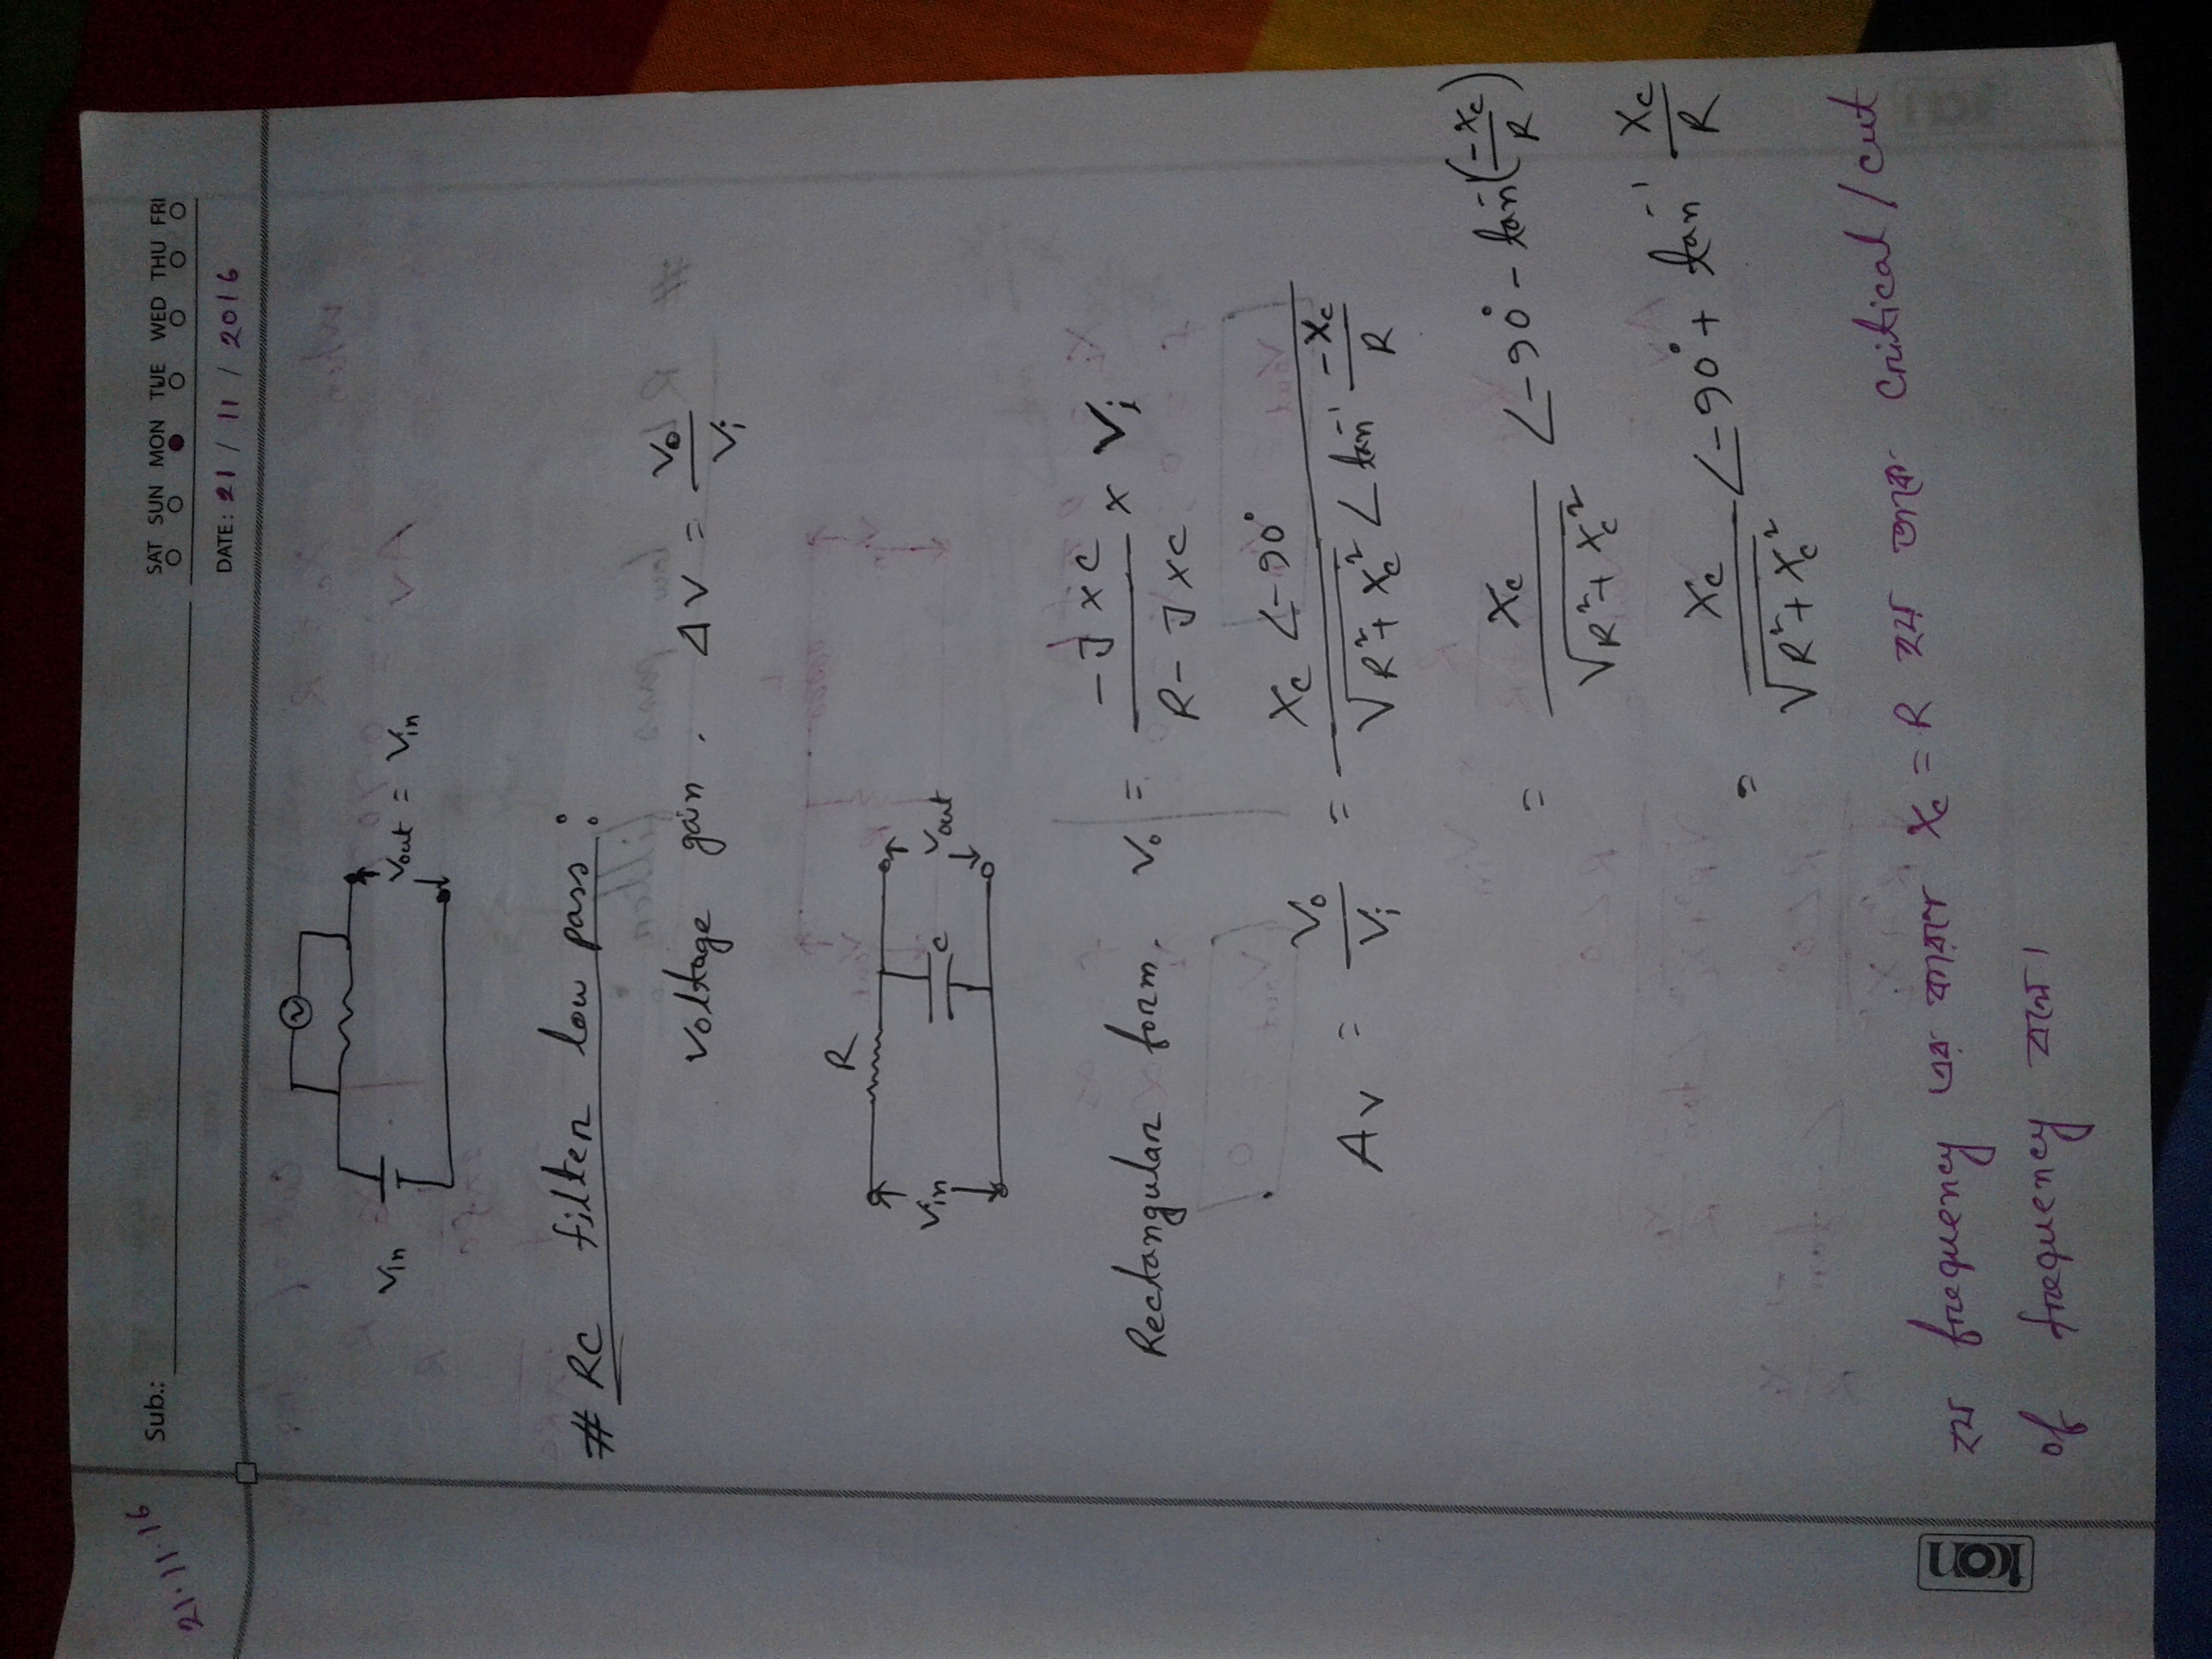 21.11.16
Sub.:
SAT SUN MON TUE WED THU FRI
DATE: 21 / 11 / 2016
Vin
Vout = Vin
# RC filter low pass :
Voltage gain. ΔV = Vo / Vi
R
Vin
C
Vout
Rectangular form. Vo = -JXC / R-JXC × Vi
Av = Vo / Vi = Xc ∠-90° / √R²+Xc² ∠tan⁻¹ -Xc / R
= Xc / √R²+Xc² ∠-90°- tan⁻(-Xc / R)
= Xc / √R²+Xc² ∠-90°+ tan⁻¹ Xc / R
হয় frequency এর কারণে Xc = R হয় তাকে critical / cut
of frequency বলে।
ion